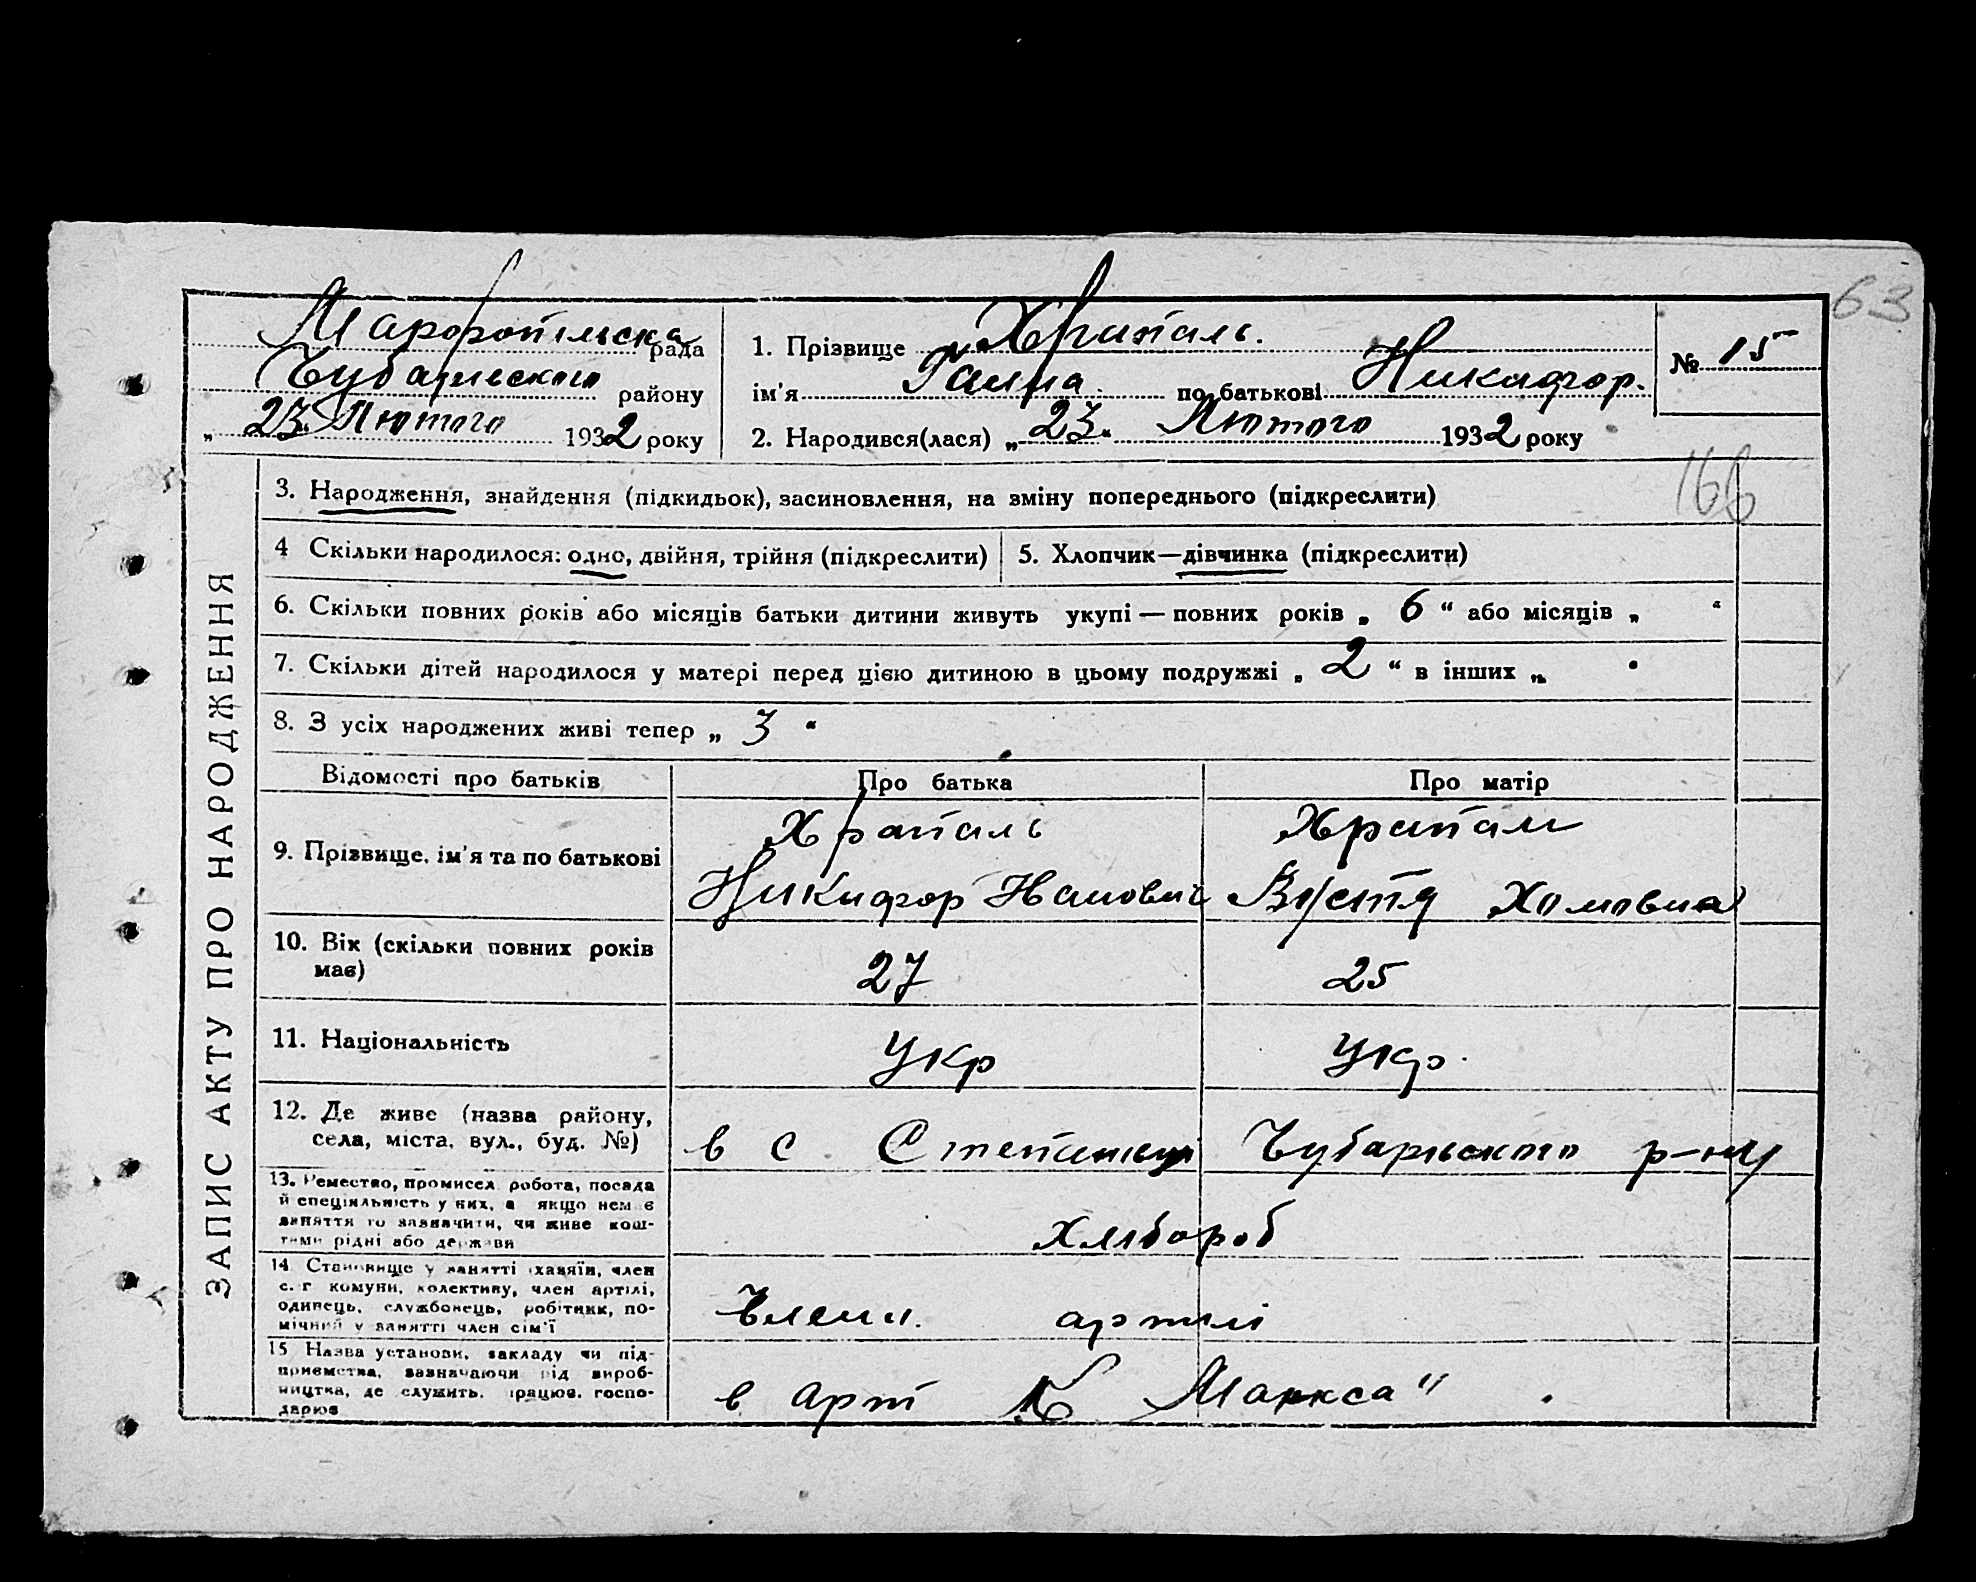 63
Марфопільська рада
Чубарівського району
„ 23 " Лютого 1932 року
1. Прізвище Храпаль.
ім'я Ганна по батькові Никифор.
2. Народився(лася) „ 23 " Лютого 1932 року
№ 15
166
ЗАПИС АКТУ ПРО НАРОДЖЕННЯ
3. Народження, знайдення (підкидьок), засиновлення, на зміну попереднього (підкреслити)
4 Скільки народилося: одно, двійня, трійня (підкреслити)
5. Хлопчик—дівчинка (підкреслити)
6. Скільки повних років або місяців батьки дитини живуть укупі — повних років „ 6 " або місяців „ "
7. Скільки дітей народилося у матері перед цією дитиною в цьому подружжі „ 2 " в інших „
8. З усіх народжених живі тепер „ 3 "
Відомості про батьків
Про батька
Про матір
9. Прізвище, ім'я та по батькові
Храпаль
Никифор
Храпаль
Хомовна
10. Вік (скільки повних років
має)
27
25
11. Національність
Укр
Укр.
12. Де живе (назва району,
села, міста, вул., буд. №)
в с. Чубарівського р-ну
13. Ремество, промисел, робота, посада
й спеціяльність у них, а якщо немає
заняття то зазначити, чи живе кош-
тами рідні або держави
Хлібороб
14. Становище у занятті (хазяїн, член
с.-г комуни, колективу, член артілі,
одинець, службовець, робітник, по-
мічний у занятті член сім'ї
Член. артілі
15 Назва установи, закладу чи під-
приємства, зазначаючи рід вироб-
ництва, де служить, працює, госпо-
дарює
в арт К Маркса"